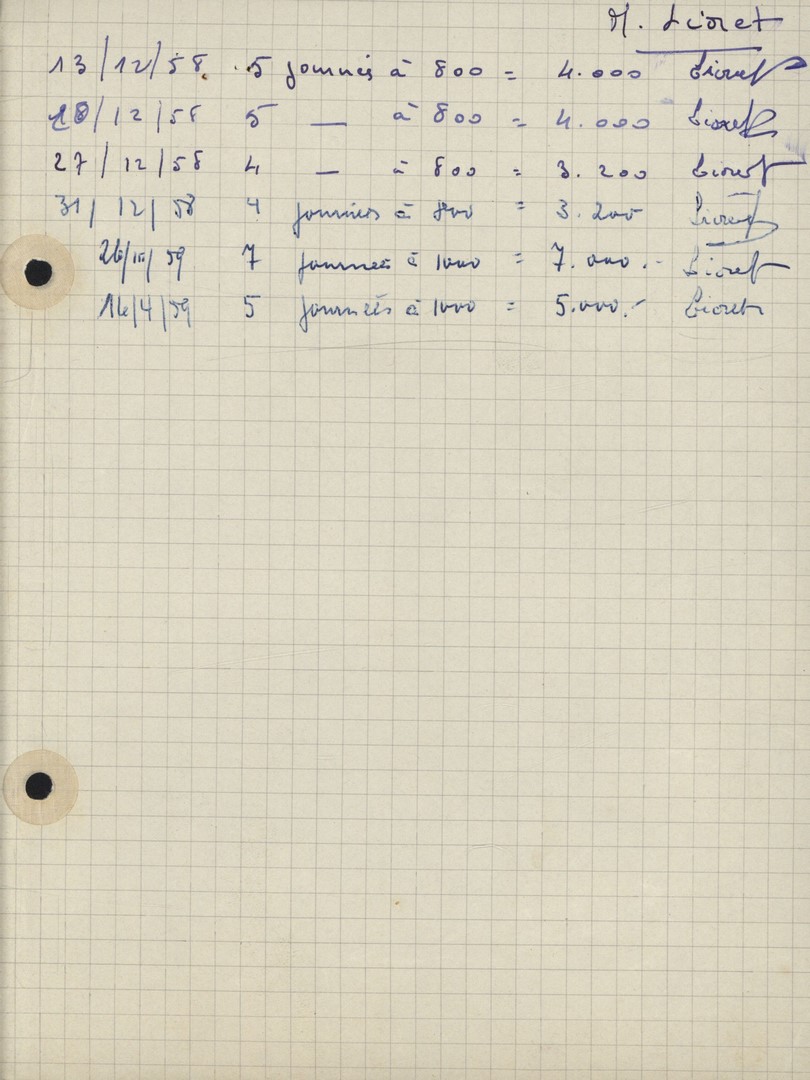 M. Lioret
13/12/58 5 journées à 800 = 4.000 Lioret
20/12/58 5 — à 800 = 4.000 Lioret
27/12/58 4 — à 800 = 3.200 Lioret
31/12/58 4 journées à 800 = 3.200 Lioret
/III/59 7 journées à 1000 = 7.000.- Lioret
14/4/59 5 journées à 1000 = 5.000.- Lioret